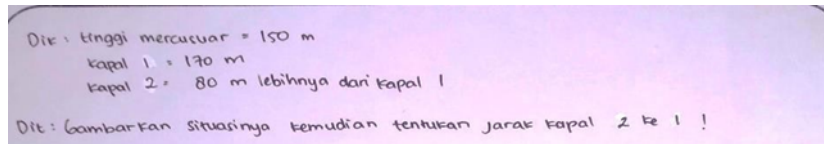 Dik : tinggi mercusuar = 150 m
kapal 1 = 170 m
kapal 2 = 80 m lebihnya dari kapal 1
Dit : Gambarkan situasinya kemudian tentukan jarak kapal 2 ke 1 !